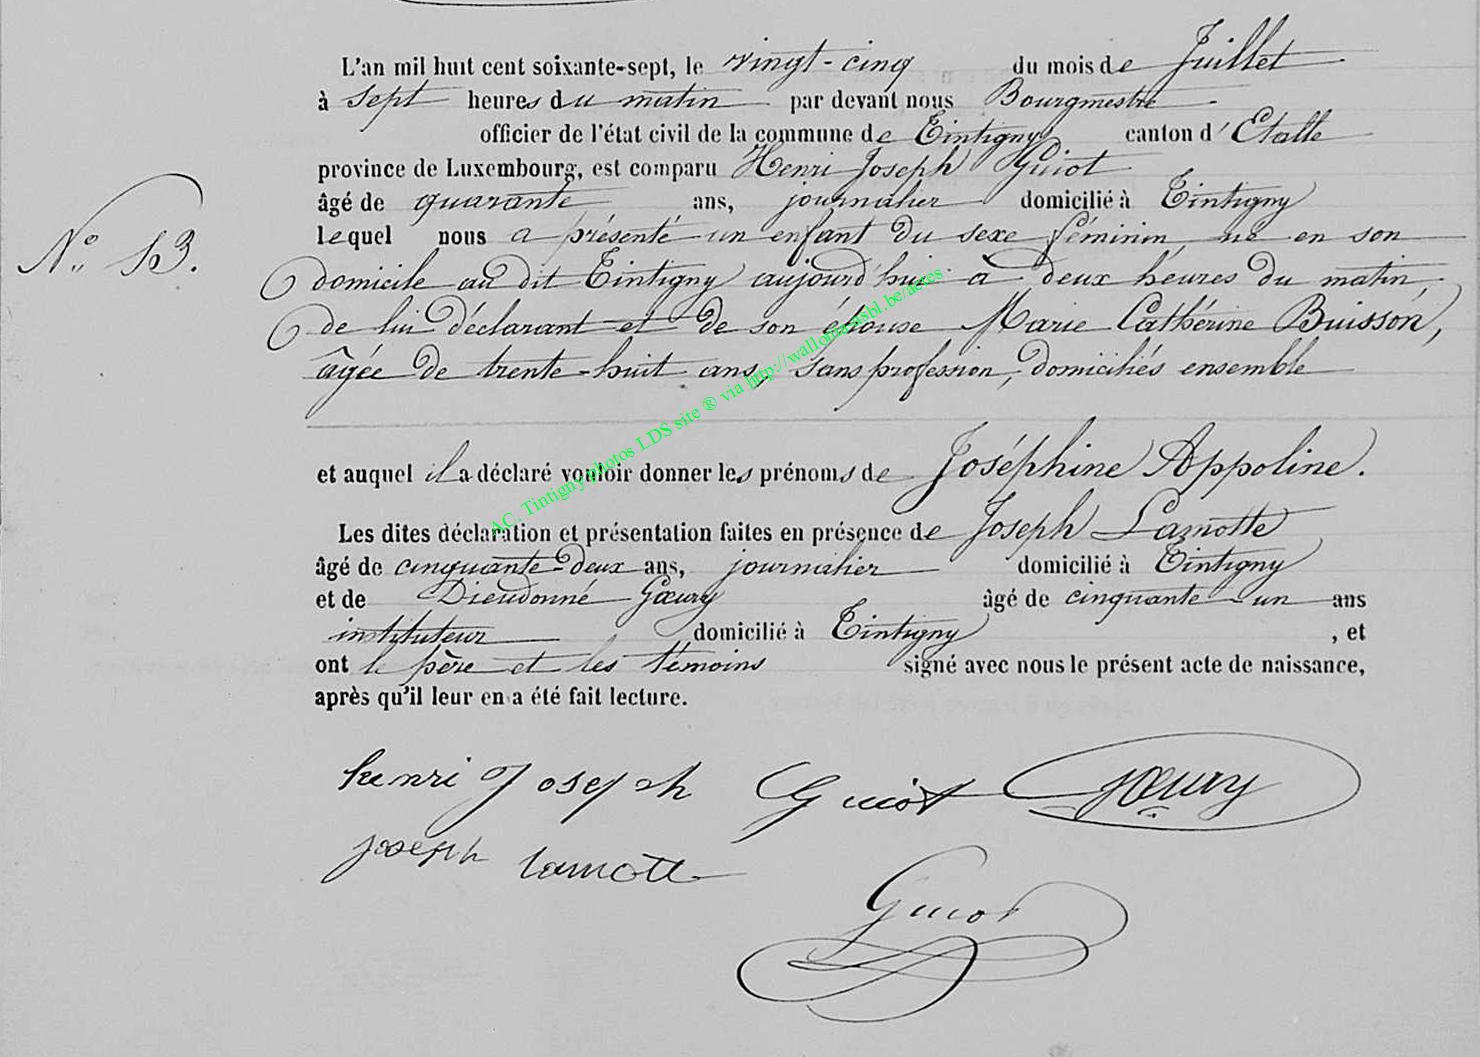 L'an mil huit cent soixante-sept, le vingt-cinq du mois de Juillet
à sept heures du matin par devant nous Bourgmestre
officier de l'état civil de la commune de Tintigny canton d'Etalle
province de Luxembourg, est comparu Henri Joseph Guiot
âgé de quarante ans, journalier domicilié à Tintigny
lequel nous a présenté un enfant du sexe féminin, né en son
domicile au dit Tintigny aujourd'hui à deux heures du matin,
de lui déclarant et de son épouse Marie Cathérine Buisson,
âgée de trente-huit ans, sans profession, domiciliés ensemble
N° 13.
et auquel il a déclaré vouloir donner les prénoms de Joséphine Appoline.
Les dites déclaration et présentation faites en présence de Joseph Lamotte
âgé de cinquante-deux ans, journalier domicilié à Tintigny
et de Dieudonné Gœury âgé de cinquante-un ans
instituteur domicilié à Tintigny , et
ont le père et les témoins signé avec nous le présent acte de naissance,
après qu'il leur en a été fait lecture.
henri Joseph Guiot Gœury
joseph lamotte
Guiot
AC. Tintigny photos LDS site ® via http://wallonia.asbl.be/actes